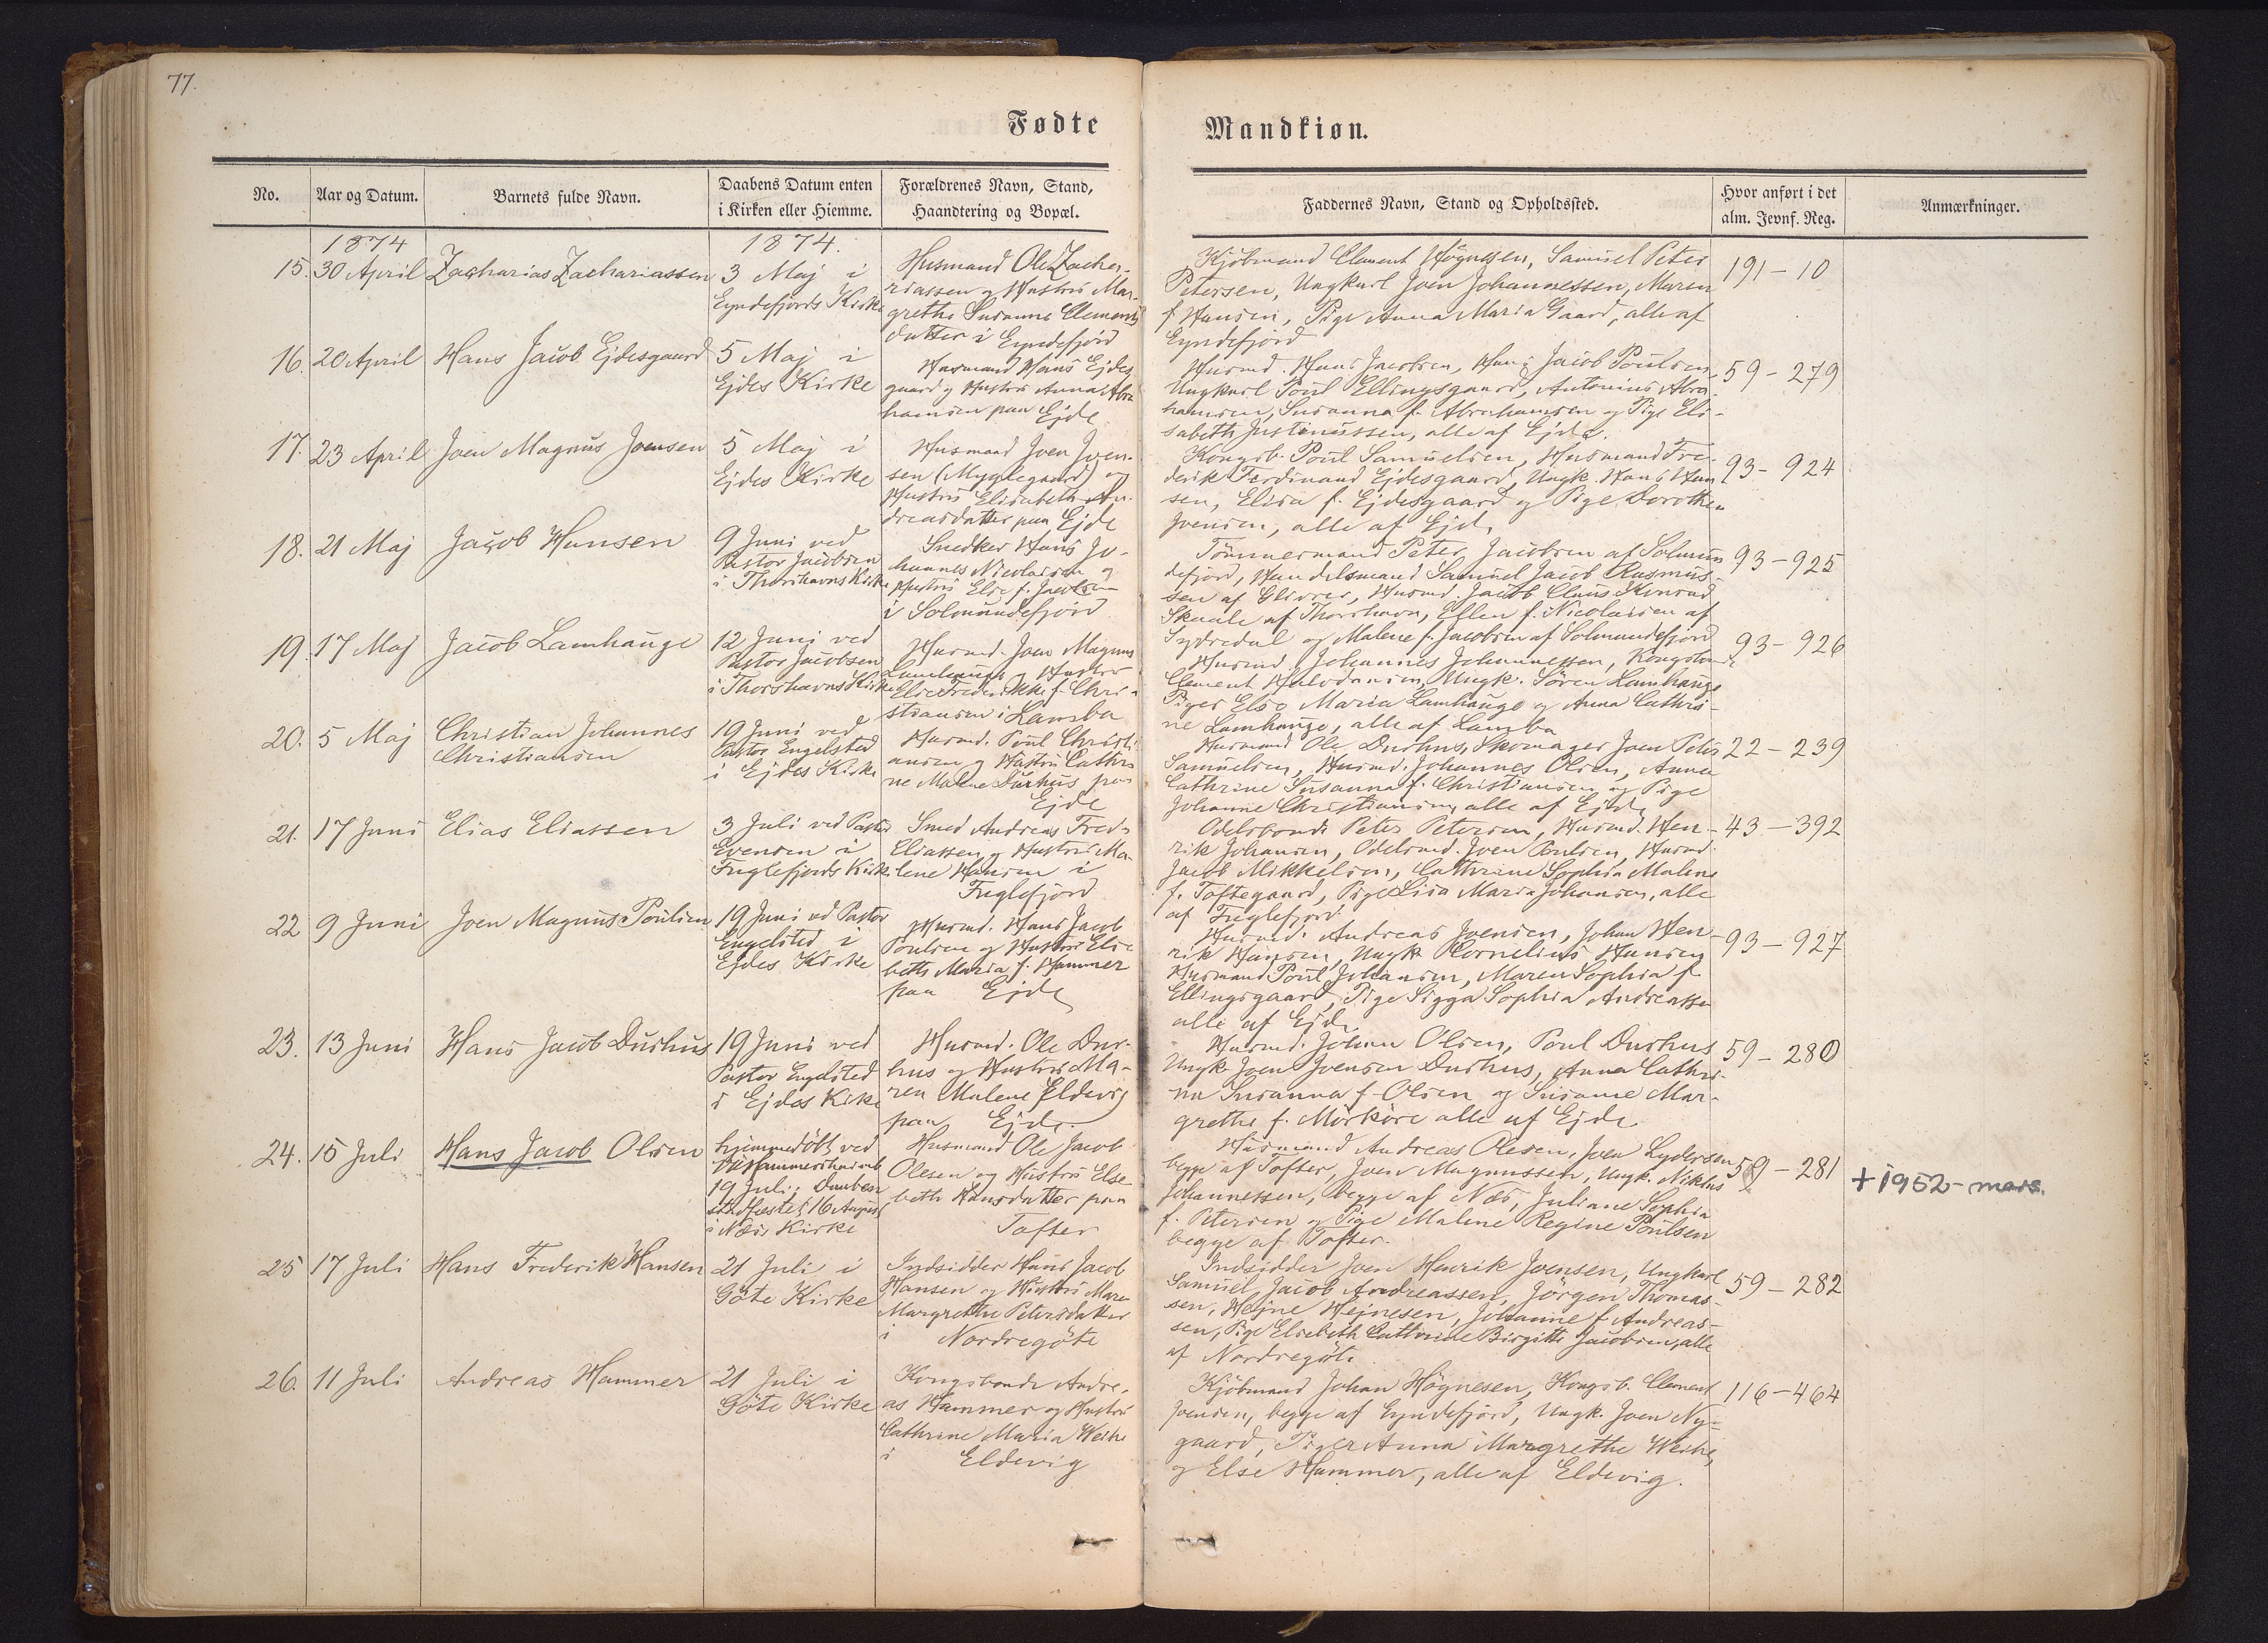 77.
Fødte
Mandkiøn.
No.
Aar og Datum.
Barnets fulde Navn.
Daabens Datum enten
i Kirken eller Hiemme.
Forældrenes Navn, Stand,
Haandtering og Bopæl.
Faddernes Navn, Stand og Opholdssted.
Hvor anført i det
alm. Jevnf. Reg.
Anmærkninger.
1874
1874.
15. 30 April Zacharias Zachariassen
3 Maj i
Eyndefjords Kirke
Husmand Ole Zacha-
riassen og Hustru Mar-
grethe Susanne Clements
datter i Eyndefjord
Kjöbmand Clement Högnesen, Samuel Peter
Petersen, Ungkarl Joen Johannessen, Maren
f. Hansen, Pige Anna Maria Gaard, alle af
Eyndefjord
191-10
16. 20 April Hans Jacob Ejdesgaard
5 Maj i
Ejdes Kirke
Husmand Hans Ejdes
gaard og Hustru Anna Abra
hamsen paa Ejde
Husmd. Hans Jacobsen, Hans Jacob Poulsen
Ungkarl Poul Ellingsgaard, Antonius Abra
hamsen, Susanna f. Abrahamsen og Pige Eli-
sabeth Justinussen, alle af Ejde.
59-279
17. 23 April Joen Magnus Joensen
5 Maj i
Ejdes Kirke
Husmand Joen Joen-
sen (Myglegaard) og
Hustru Elisabeth An-
dreasdatter paa Ejde
Kongsb. Poul Samuelsen, Husmand Fre-
derik Ferdinand Ejdesgaard, Ungk. Hans Han
sen, Elisa f. Ejdesgaard og Pige Dorothea
Joensen, alle af Ejde
93-924
18. 21 Maj Jacob Hansen
9 Juni ved
Pastor Jacobsen
i Thorshavns Kirke
Snedker Hans Jo-
hannes Nicolaisen og
Hustru Else f. Jacobsen
i Solmundefjord
Tömmermand Peter Jacobsen af Solmun
defjord, Handelsmand Samuel Jacob Rasmus-
sen af Glivrer, Husmd. Jacob Claus Konrad
Skaale af Thorshavn, Ellen f. Nicolaisen af
Sydredal og Malene f. Jacobsen af Solmundefjord
93-925
19. 17 Maj Jacob Lamhauge
12 Juni ved
Pastor Jacobsen
i Thorshavns Kirke
Husmd. Joen Magnus
Lamhauge og Hustru
Else Frederikke f. Chri-
stiansen i Lamba
Husmd. Johannes Johannessen, Kongsbonde
Clement Halvdansen, Ungk. Sören Lamhauge
Piger Else Maria Lamhauge og Anna Cathri-
ne Lamhauge, alle af Lamba
93-926
20. 5 Maj Christian Johannes
Christiansen
19 Juni ved
Pastor Engelsted
i Ejdes Kirke
Husmd. Poul Christi
ansen og Hustru Cathri
ne Malene Durhus paa
Ejde
Husmand Ole Durhus, Skomager Joen Peter
Samuelsen, Husmd. Johannes Olsen, Anna
Cathrine Susanna f. Christiansen og Pige
Johanne Christiansen, alle af Ejde
22-239
21. 17 Juni Elias Eliassen
3 Juli ved Pastor
Evensen i
Fuglefjords Kirke
Smed Andreas Fred.
Eliassen og Hustru Ma-
lene Hansen i
Fuglefjord
Odelsbonde Peter Petersen, Husmd. Hen-
rik Johansen, Odelsmd. Joen Poulsen, Husmd
Jacob Mikkelsen, Cathrine Sophia Malene
f. Toftegaard, Pige Lisa Maria Johansen, alle
af Fuglefjord.
43-392
22 9 Juni Joen Magnus Poulsen
19 Juni ved Pastor
Engelsted i
Ejdes Kirke
Husmd. Hans Jacob
Poulsen og Hustru Elsa
beth Maria f. Hammer
paa Ejde
Husmd. Andreas Joensen, Johan Hen
rik Hansen, Ungk. Cornelius Hansen
Husmand Poul Johansen, Maren Sophia f.
Ellingsgaard, Pige Sigga Sophia Andreassen
alle af Ejde
93-927
23. 13 Juni Hans Jacob Durhus
19 Juni ved
Pastor Engelsted
i Ejdes Kirke
Husmd. Ole Dur-
hus og Hustru Ma-
ren Malene Eldevig
paa Ejde.
Husmd. Johan Olsen, Poul Durhus
Ungk. Joen Joensen Durhus, Anna Cathri-
ne Susanna f. Olsen og Susanne Mar-
grethe f. Mörköre alle af Ejde
59-280
24. 15 Juli Hans Jacob Olsen
hjemmedöbt ved
Hammershaimb
19 Juli, Daaben
stadfæstet 16 August
i Næs Kirke
Husmand Ole Jacob
Olesen og Hustru Else-
beth Hansdatter paa
Tofter
Husmand Andreas Olesen, Joen Lydersen
begge af Tofter, Joen Magnussen, Ungk. Niklas
Johannessen, begge af Næs, Juliane Sophia
f. Petersen og Pige Malene Regine Poulsen
begge af Tofter.
59-281
+1952-mars.
25 17 Juli Hans Frederik Hansen
21 Juli i
Göte Kirke
Indsidder Hans Jacob
Hansen og Hustru Maren
Margrethe Petersdatter
i Nordregöte
Indsidder Joen Henrik Joensen, Ungkarl
Samuel Jacob Andreassen, Jörgen Thomas-
sen, Hejne Hejnesen, Johanne f. Andreas-
sen, Pige Elsebeth Cathrine Birgitte Jacobsen, alle
af Nordregöte.
59-282
26. 11 Juli Andreas Hammer
21 Juli i
Göte Kirke
Kongsbonde Andre-
as Hammer og Hustru
Cathrine Maria Weihe
i Eldevig
Kjöbmand Johan Högnesen, Kongsb. Clement
Joensen, begge af Eyndefjord, Ungk. Joen Ny-
gaard, Piger Anna Margrethe Weihe,
og Else Hammer, alle af Eldevig.
116-464